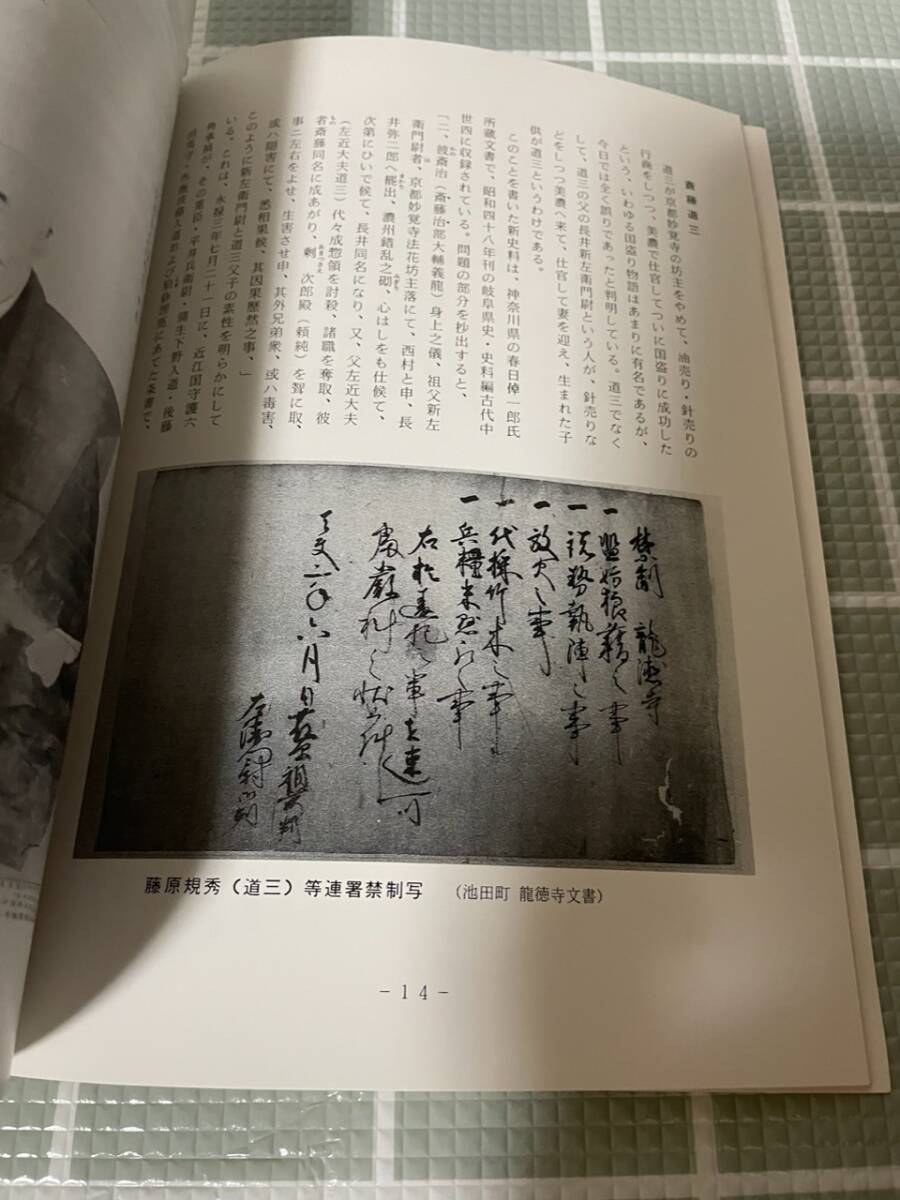 斎藤道三
道三が京都妙覚寺の坊主をやめて、油売り・針売りの
行商をしつつ、美濃で仕官してついに国盗りに成功した
という、いわゆる国盗り物語はあまりに有名であるが、
今日では全く誤りであったと判明している。道三でなく
して、道三の父の長井新左衛門尉という人が、針売りな
どをしつつ美濃へ来て、仕官して妻を迎え、生まれた子
供が道三というわけである。
このことを書いた新史料は、神奈川県の春日倬一郎氏
所蔵文書で、昭和四十八年刊の岐阜県史・史料編古代中
世四に収録されている。問題の部分を抄出すると、
「一、彼斎治（斎藤治部大輔義龍）身上之儀、祖父新左
衛門尉者、京都妙覚寺法花坊主落にて、西村と申、長
井弥二郎へ罷出、濃州錯乱之砌、心はしをも仕候て、
次第にひいで候て、長井同名になり、又、父左近大夫
（左近大夫道三）代々成惣領を討殺、諸職を奪取、彼
者斎藤同名に成あがり、剰 次郎殿（頼純）を聟に取、
事ニ左右をよせ、生害させ申、其外兄弟衆、或ハ毒害、
或ハ隠害にて、悉相果候、其因果歴然之事、」
このように新左衛門尉と道三父子の素性を明らかにして
いる。これは、永禄三年七月二十一日に、近江国守護六
角承禎が、その重臣・平井兵衛尉・蒲生下野入道・後藤
禁制 龍徳寺
一 濫妨狼藉之事
一 放火之事
一 伐採竹木之事
一 兵糧米
天文 六月日
藤原規秀（道三）等連署禁制写 （池田町 龍徳寺文書）
－14－